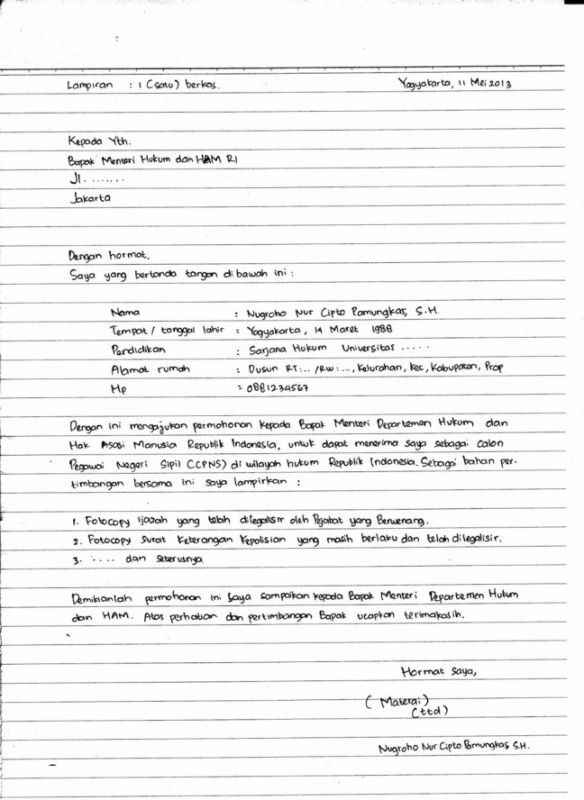 Lampiran : 1 (satu) berkas. Yogyakarta, 11 Mei 2013
Kepada Yth.
Bapak Menteri Hukum dan HAM RI
Jl. ........
Jakarta
Dengan hormat,
Saya yang bertanda tangan dibawah ini :
Nama : Nugroho Nur Cipto Pamungkas, S.H.
Tempat / tanggal lahir : Yogyakarta, 14 Maret 1988
Pendidikan : Sarjana Hukum Universitas .....
Alamat rumah : Dusun RT:.. /RW:..., Kelurahan, Kec, Kabupaten, Prop
Hp : 0881234567
Dengan ini mengajukan permohonan kepada Bapak Menteri Departemen Hukum dan
Hak Asasi Manusia Republik Indonesia, untuk dapat menerima saya sebagai Calon
Pegawai Negeri Sipil (CPNS) di wilayah hukum Republik Indonesia. Sebagai bahan per-
timbangan bersama ini saya lampirkan :
1. Fotocopy ijazah yang telah dilegalisir oleh Pejabat yang Berwenang.
2. Fotocopy Surat Keterangan Kepolisian yang masih berlaku dan telah dilegalisir.
3. ..... dan seterusnya
Demikianlah permohonan ini saya sampaikan kepada Bapak Menteri Departemen Hukum
dan HAM. Atas perhatian dan pertimbangan Bapak ucapkan terimakasih.
Hormat saya,
( Materai )
(ttd)
Nugroho Nur Cipto Pamungkas S.H.